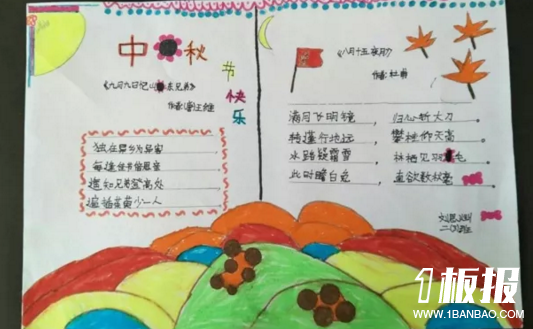 中秋
节快乐
《九月九日忆山东兄弟》
作者:唐王维
独在异乡为异客
每逢佳节倍思亲
遥知兄弟登高处
遍插茱萸少一人
《八月十五夜月》
作者:杜甫
满月飞明镜, 归心折大刀.
转蓬行地远, 攀桂仰天高.
水路疑霜雪, 林栖见羽毛.
此时瞻白兔, 直欲数秋毫.
1板报
WWW.1BANBAO.COM